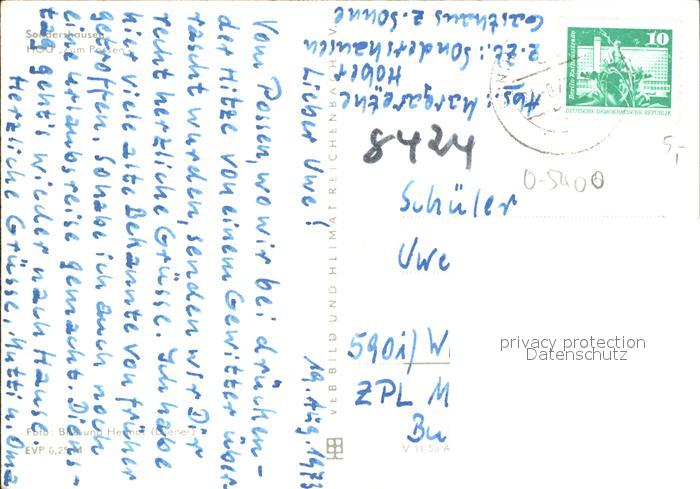 Sondershausen
HOG "Zum Possen"
Lieber Uwe!
19. Aug. 1973
Vom Possen, wo wir bei drücken-
der Hitze von einem Gewitter über-
rascht wurden, senden wir Dir
recht herzliche Grüsse. Ich habe
hier viele alte Bekannte von früher
getroffen. So habe ich auch noch
eine Urlaubsreise gemacht. Diens-
tag geht's wieder nach Hause.
Herzliche Grüsse, Mutti u. Oma
Foto: Bild und Heimat
EVP 0,25 M
VEB BILD UND HEIMAT REICHENBACH
V 11 50 A
Abs.: Margarethe
Höber
z. Zt.: Sondershausen
Gasthaus z. Sonne
10
Berlin-Rathausstraße
DEUTSCHE DEMOKRATISCHE REPUBLIK
5,-
8424
0-5400
Schüler
Uwe
5901) W
ZPL M
Bu
privacy protection
Datenschutz